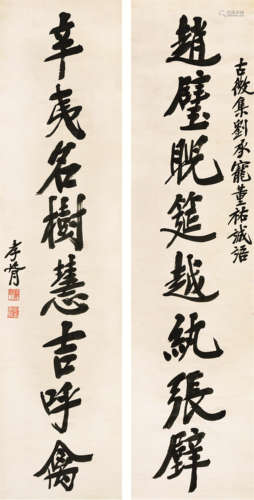 古微集劉承寵董祐誠語
趙璧睨筵越紈張壁
辛夷名樹慧吉呼禽
孝胥